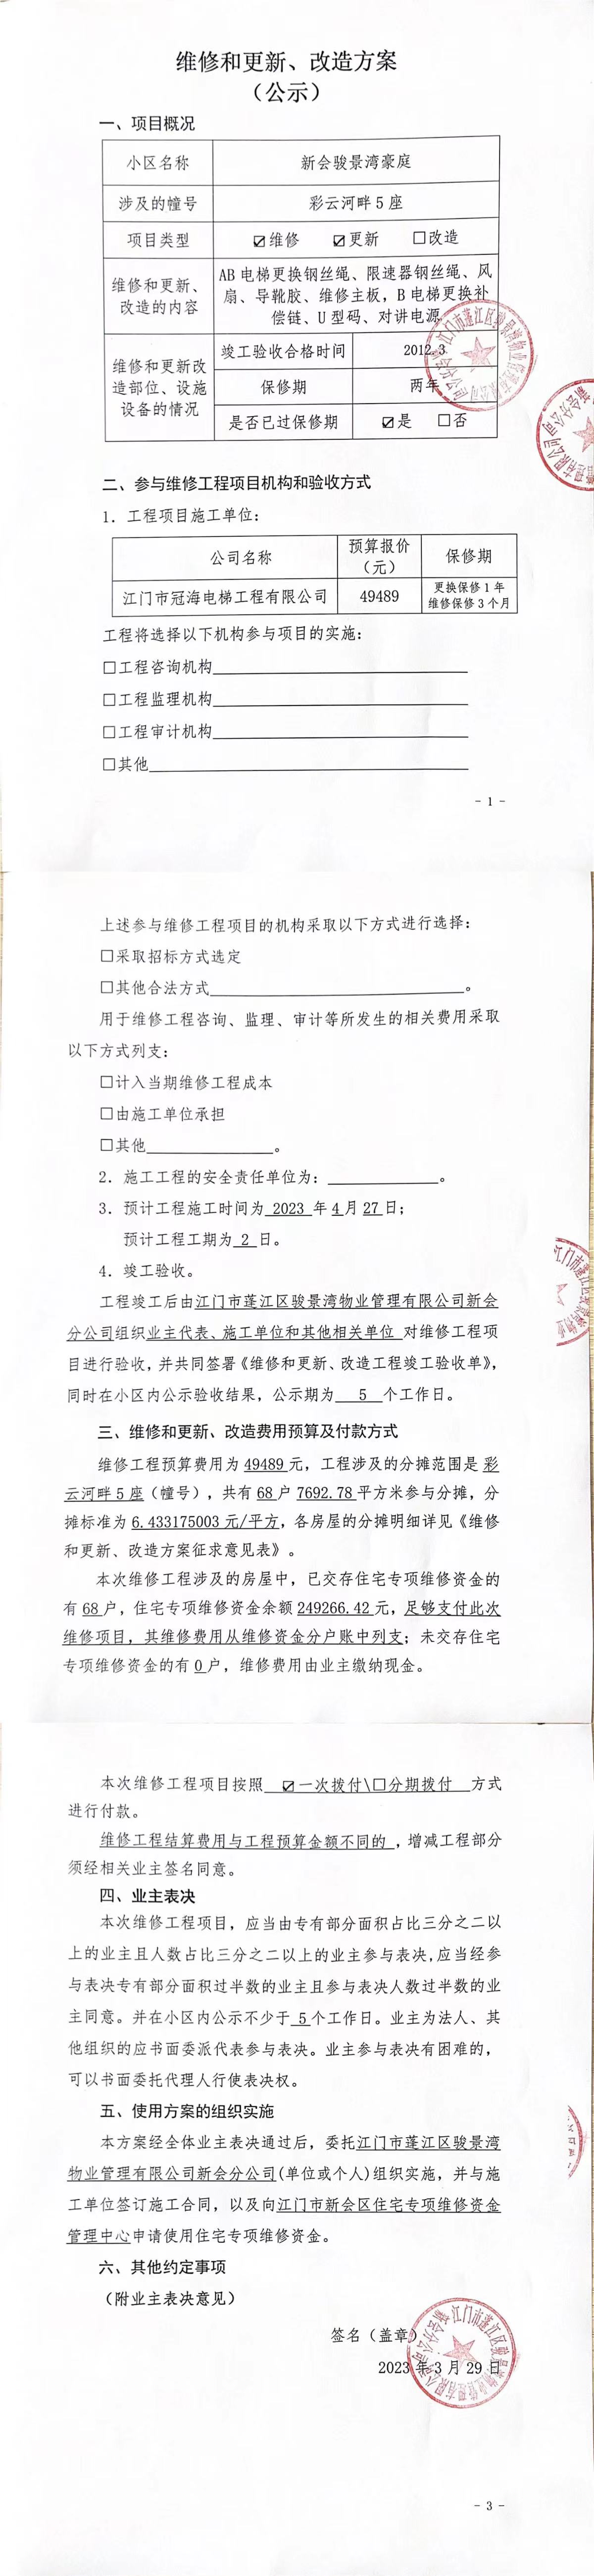 维修和更新、改造方案
（公示）
一、项目概况
小区名称 新会骏景湾豪庭
涉及的幢号 彩云河畔 5 座
项目类型 ☑维修 ☑更新 □改造
维修和更新、改造的内容
AB 电梯更换钢丝绳、限速器钢丝绳、风
扇、导靴胶、维修主板，B 电梯更换补
偿链、U 型码、对讲电源
维修和更新改造部位、设施设备的情况
竣工验收合格时间 2012.3
保修期 两年
是否已过保修期 ☑是 □否
二、参与维修工程项目机构和验收方式
1. 工程项目施工单位：
公司名称 预算报价（元） 保修期
江门市冠海电梯工程有限公司 49489 更换保修 1 年 维修保修 3 个月
工程将选择以下机构参与项目的实施：
□工程咨询机构
□工程监理机构
□工程审计机构
□其他
- 1 -
上述参与维修工程项目的机构采取以下方式进行选择：
□采取招标方式选定
□其他合法方式 。
用于维修工程咨询、监理、审计等所发生的相关费用采取
以下方式列支：
□计入当期维修工程成本
□由施工单位承担
□其他 。
2. 施工工程的安全责任单位为： 。
3. 预计工程施工时间为 2023 年 4 月 27 日；
预计工程工期为 2 日。
4. 竣工验收。
工程竣工后由江门市蓬江区骏景湾物业管理有限公司新会
分公司组织业主代表、施工单位和其他相关单位 对维修工程项
目进行验收，并共同签署《维修和更新、改造工程竣工验收单》，
同时在小区内公示验收结果，公示期为 5 个工作日。
三、维修和更新、改造费用预算及付款方式
维修工程预算费用为 49489 元，工程涉及的分摊范围是 彩
云河畔 5 座（幢号），共有 68 户 7692.78 平方米参与分摊，分
摊标准为 6.433175003 元/平方，各房屋的分摊明细详见《维修
和更新、改造方案征求意见表》。
本次维修工程涉及的房屋中，已交存住宅专项维修资金的
有 68 户，住宅专项维修资金余额 249266.42 元，足够支付此次
维修项目，其维修费用从维修资金分户账中列支；未交存住宅
专项维修资金的有 0 户，维修费用由业主缴纳现金。
本次维修工程项目按照 ☑一次拨付\□分期拨付 方式
进行付款。
维修工程结算费用与工程预算金额不同的 ，增减工程部分
须经相关业主签名同意。
四、业主表决
本次维修工程项目，应当由专有部分面积占比三分之二以
上的业主且人数占比三分之二以上的业主参与表决，应当经参
与表决专有部分面积过半数的业主且参与表决人数过半数的业
主同意。并在小区内公示不少于 5 个工作日。业主为法人、其
他组织的应书面委派代表参与表决。业主参与表决有困难的，
可以书面委托代理人行使表决权。
五、使用方案的组织实施
本方案经全体业主表决通过后，委托江门市蓬江区骏景湾
物业管理有限公司新会分公司(单位或个人)组织实施，并与施
工单位签订施工合同，以及向江门市新会区住宅专项维修资金
管理中心申请使用住宅专项维修资金。
六、其他约定事项
（附业主表决意见）
签名（盖章）
2023 年 3 月 29 日
- 3 -